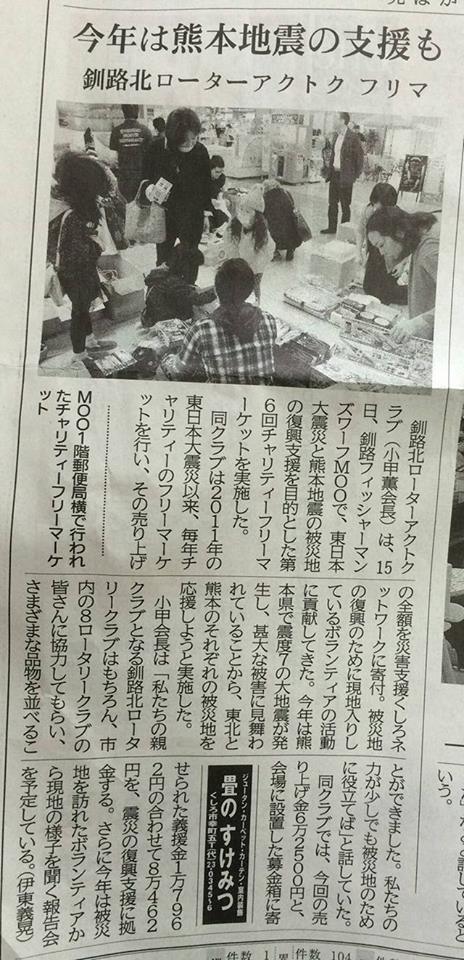 今年は熊本地震の支援も
釧路北ローターアクトク フリマ
釧路北ローターアクトク
ラブ（小甲薫会長）は、15
日、釧路フィッシャーマン
ズワーフMOOで、東日本
大震災と熊本地震の被災地
の復興支援を目的とした第
6回チャリティーフリーマ
ーケットを実施した。
同クラブは2011年の
東日本大震災以来、毎年チ
ャリティーのフリーマーケ
ットを行い、その売り上げ
MOO1階郵便局横で行われ
たチャリティーフリーマーケ
ット
の全額を災害支援くしろネ
ットワークに寄付。被災地
の復興のために現地入りし
ているボランティアの活動
に貢献してきた。今年は熊
本県で震度7の大地震が発
生し、甚大な被害に見舞わ
れていることから、東北と
熊本のそれぞれの被災地を
応援しようと実施した。
小甲会長は「私たちの親
クラブとなる釧路北ロータ
リークラブはもちろん、市
内の8ロータリークラブの
皆さんに協力してもらい、
さまざまな品物を並べるこ
とができました。私たちの
力が少しでも被災地のため
に役立てば」と話していた。
同クラブでは、今回の売
り上げ金6万2500円と、
会場に設置した募金箱に寄
せられた義援金1万796
2円の合わせて8万462
円を、震災の復興支援に拠
金する。さらに今年は被災
地を訪れたボランティアか
ら現地の様子を聞く報告会
を予定している。（伊東義晃）
ジュータン・カーペット・カーテン・室内装飾
畳の すけみつ
件数 104